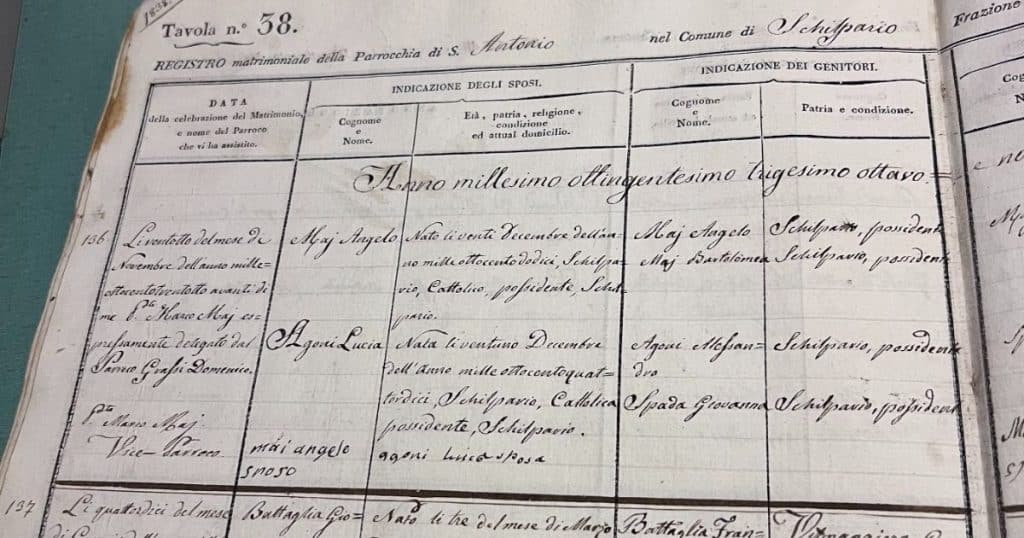 1838.
Tavola n.° 38.
REGISTRO matrimoniale della Parrocchia di S. Antonio nel Comune di Schilpario
Frazione
DATA
della celebrazione del Matrimonio,
e nome del Parroco
che vi ha assistito.
INDICAZIONE DEGLI SPOSI.
Cognome
e
Nome.
Età, patria, religione,
condizione
ed attual domicilio.
INDICAZIONE DEI GENITORI.
Cognome
e
Nome.
Patria e condizione.
Anno millesimo ottingentesimo trigesimo ottavo=
136
Li ventotto del mese di
Novembre dell'anno mille=
ottocentotrentotto avanti di
me P.te Marco Maj es=
pressamente delegato dal
Parroco Grassi Domenico.
P.te Marco Maj
Vice-Parroco
Maj Angelo
Agoni Lucia
mai angelo
sposo
Nato li venti Decembre dell'an=
no mille ottocento dodici, Schilpa=
rio, Cattolico, possidente, Schil=
pario.
Nata li ventuno Decembre
dell'Anno mille ottocento quat=
tordici, Schilpario, Cattolica
possidente, Schilpario.
agoni lucia sposa
Maj Angelo
Maj Bartolomea
Agoni Alessan=
dro
Spada Giovanna
Schilpario, possident
Schilpario, possident
Schilpario, possident
Schilpario, possident
137
Li quattordici del mese
Battaglia Gio=
Nato li tre del mese di Marzo
Battaglia Fran=